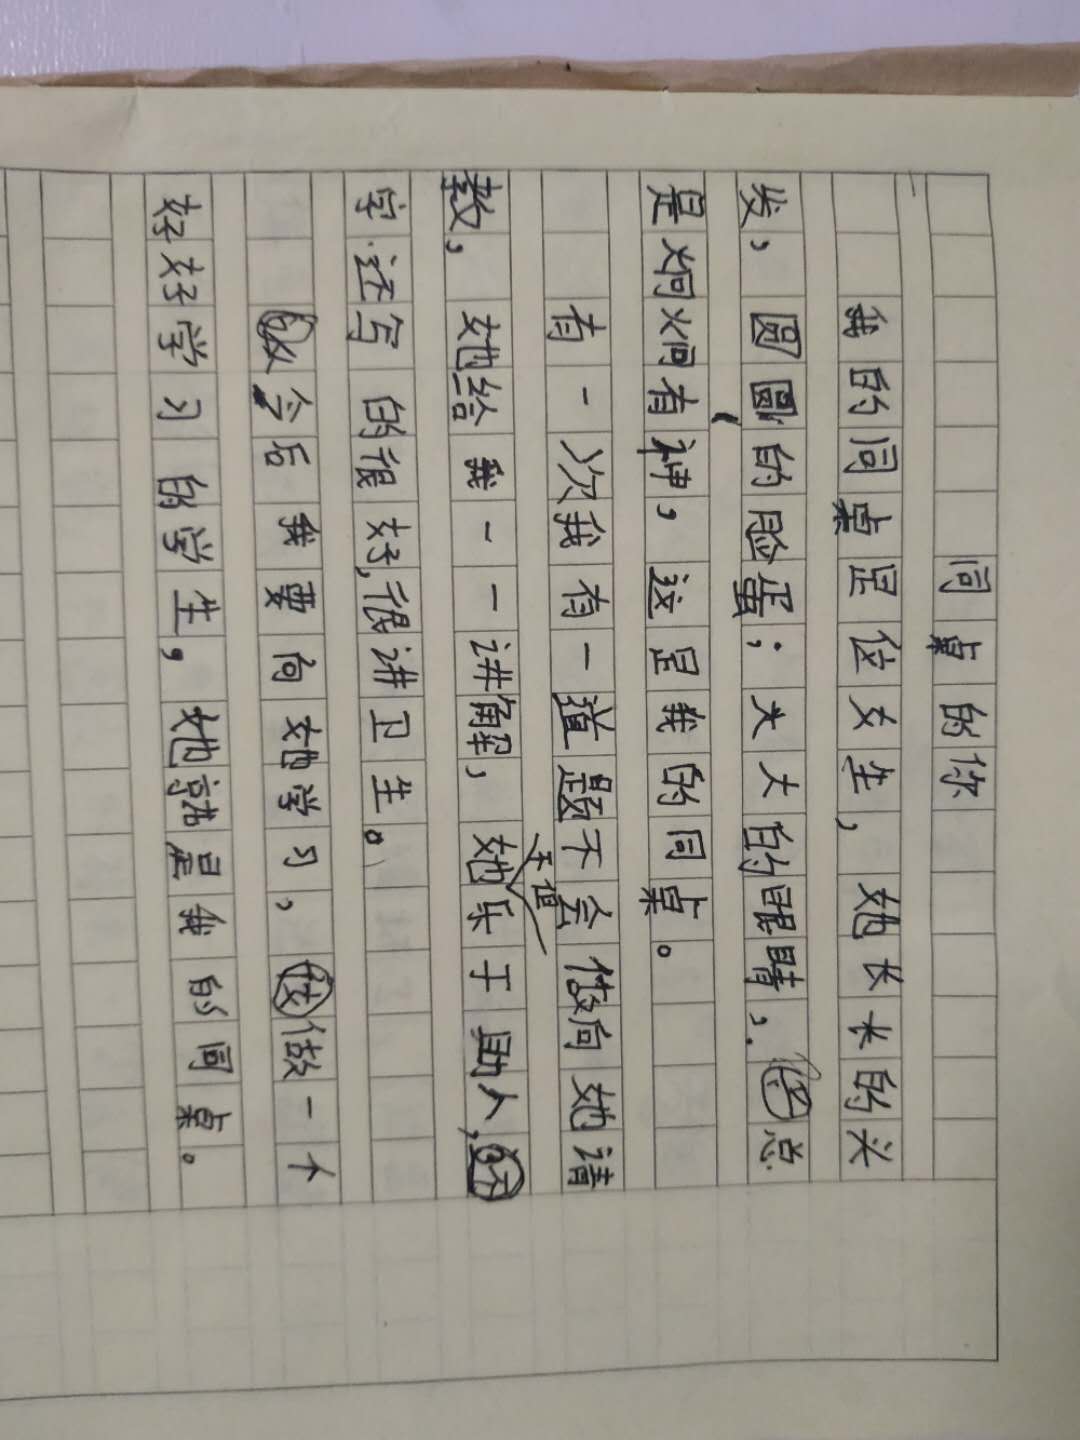 同桌的你
我的同桌是位女生，她长长的头
发，圆圆的脸蛋；大大的眼睛，总
是炯炯有神，这是我的同桌。
有一次我有一道题不会做向她请
教，她给我一一讲解，她不但乐于助人，
字还写的很好，很讲卫生。
今后我要向她学习，做一个
好好学习的学生，她就是我的同桌。